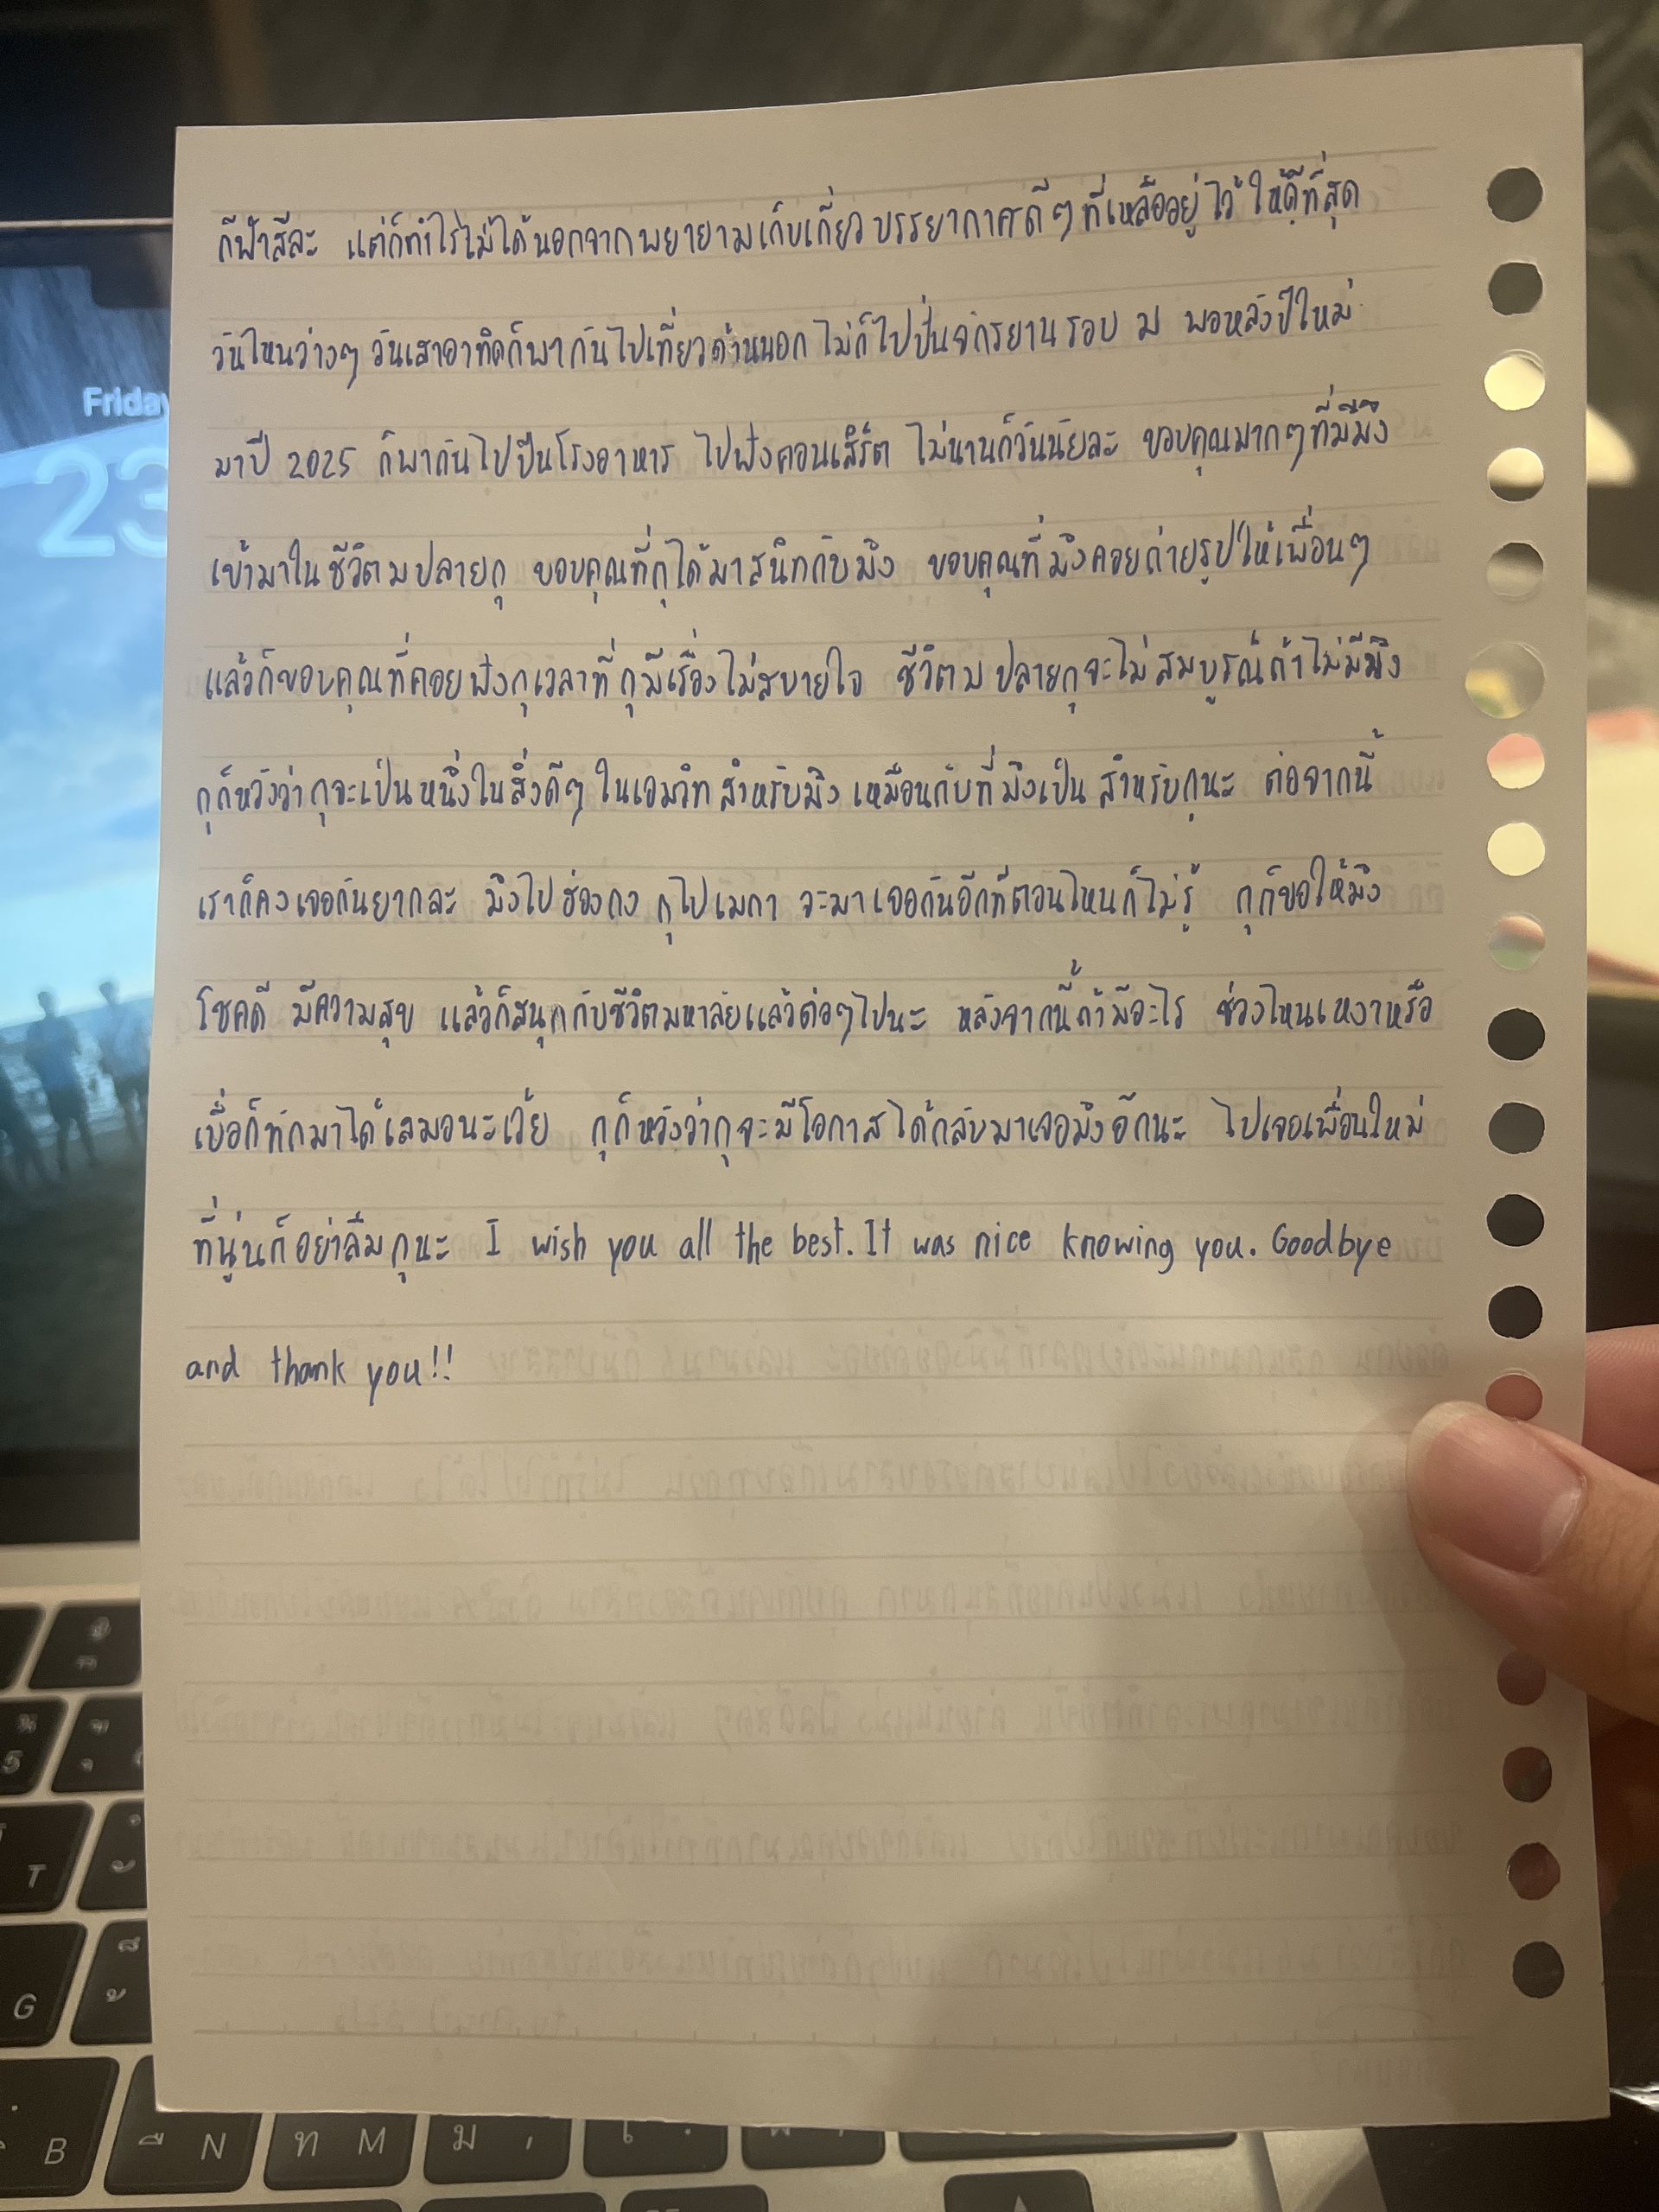 กีฬาสีละ แต่ก็ทำไรไม่ได้นอกจากพยายามเก็บเกี่ยวบรรยากาศดีๆที่เหลืออยู่ไว้ให้ดีที่สุด
วันไหนว่างๆ วันเสาอาทิตก็พากันไปเที่ยวด้านนอก ไม่ก็ไปปั่นจักรยานรอบ ม พอหลังปีใหม่
มาปี 2025 ก็พากันไปปีนโรงอาหาร ไปฟังคอนเสิร์ต ไม่นานก็วันนัยละ ขอบคุณมากๆที่มีมึง
เข้ามาในชีวิตมปลายกุ ขอบคุณที่กุได้มาสนิทกับมึง ขอบคุณที่มึงคอยถ่ายรูปให้เพื่อนๆ
แล้วก็ขอบคุณที่คอยฟังกุเวลาที่กุมีเรื่องไม่สบายใจ ชีวิตมปลายกุจะไม่สมบูรณ์ถ้าไม่มีมึง
กุก็หวังว่ากุจะเป็นหนึ่งในสิ่งดีๆในเจมวิทสำหรับมึง เหมือนกับที่มึงเป็นสำหรับกุนะ ต่อจากนี้
เราก็คงเจอกันยากละ มึงไปฮ่องกง กุไปเมกา จะมาเจอกันอีกทีตอนไหนก็ไม่รู้ กุก็ขอให้มึง
โชคดี มีความสุข แล้วก็สนุกกับชีวิตมหาลัยแล้วต่อๆไปนะ หลังจากนี้ถ้ามีอะไร ช่วงไหนเหงาหรือ
เบื่อก็ทักมาได้เสมอนะเว้ย กุก็หวังว่ากุจะมีโอกาสได้กลับมาเจอมึงอีกนะ ไปเจอเพื่อนใหม่
ที่นู่นก็อย่าลืมกุนะ I wish you all the best. It was nice knowing you. Goodbye
and thank you!!
Friday
23
5
T
G
B
N
M